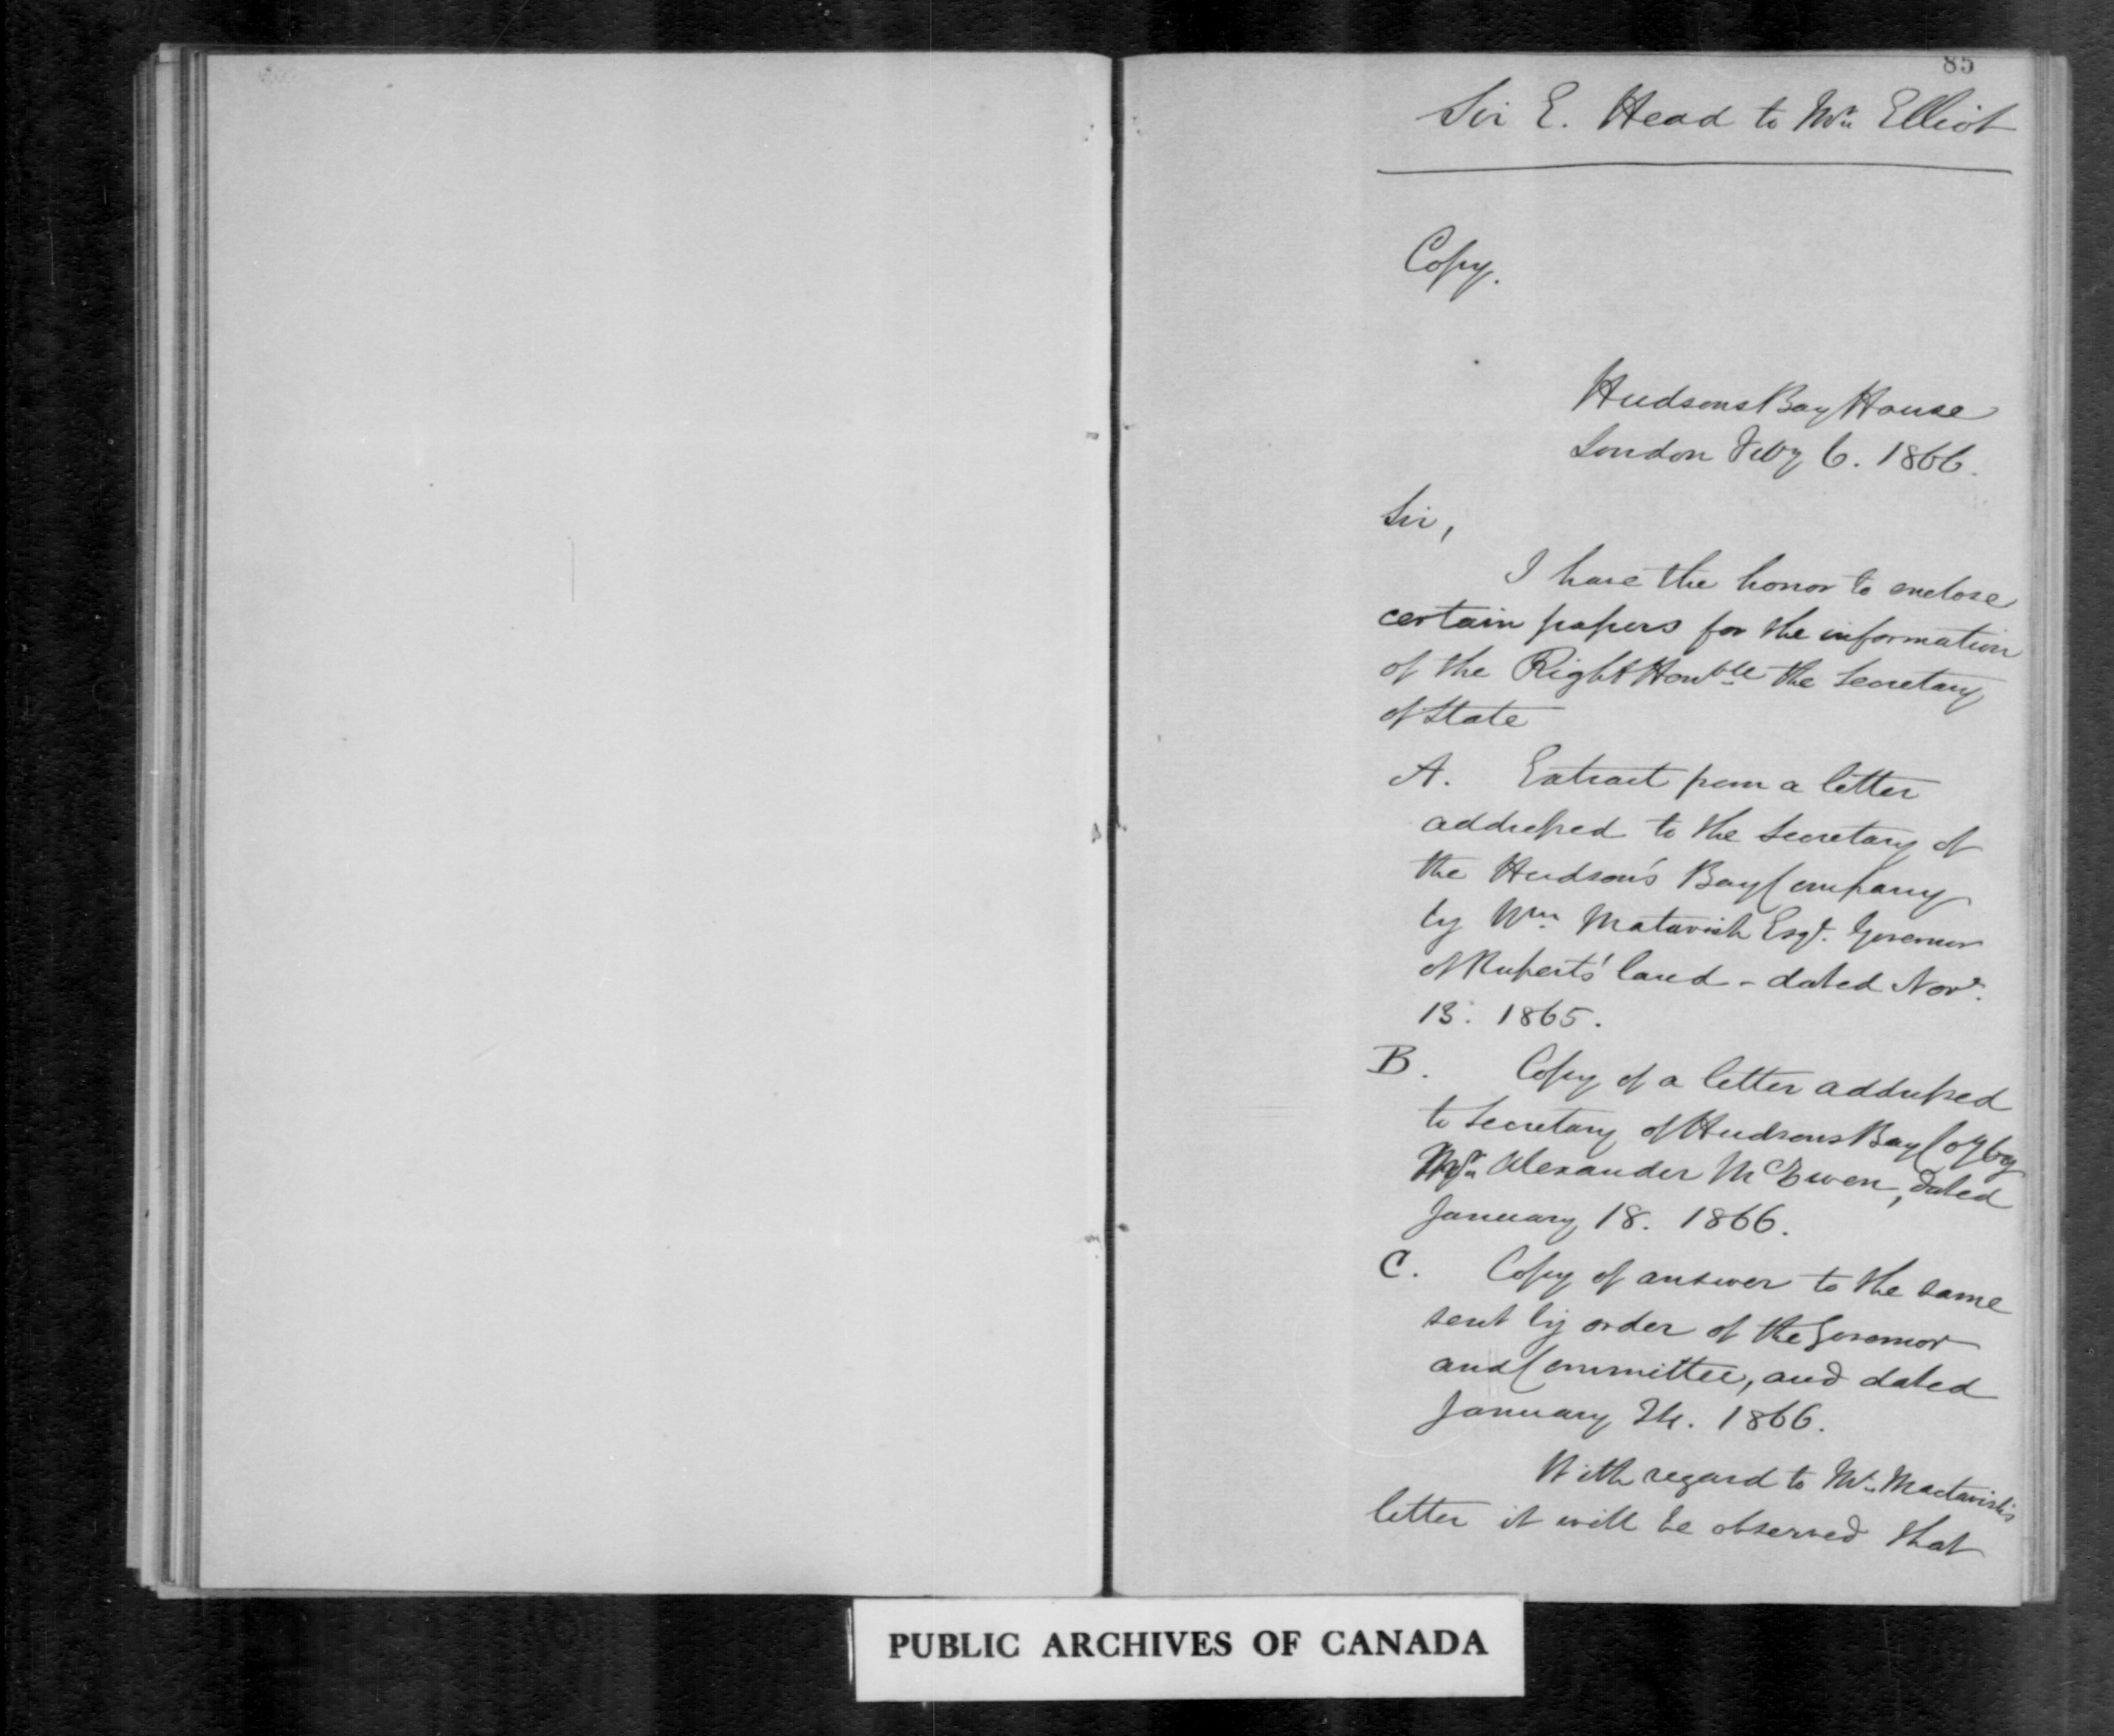 85
Sir E. Head to Mr. Elliot
Copy.
Hudsons Bay House
London Feby 6. 1866.
Sir,
I have the honor to enclose
certain papers for the information
of the Right Honble the Secretary
of State
A. Extract from a letter
addressed to the Secretary of
the Hudson's Bay Company
by Wm. Matavish Esqr. Governor
of Ruperts' land - dated Novr.
13. 1865.
B. Copy of a letter addressed
to Secretary of Hudsons Bay Coy by
Mr. Alexander McEwen, dated
January 18. 1866.
C. Copy of answer to the same
sent by order of the Governor
and Committee, and dated
January 24. 1866.
With regard to Mr. Mactavish's
letter it will be observed that
PUBLIC ARCHIVES OF CANADA